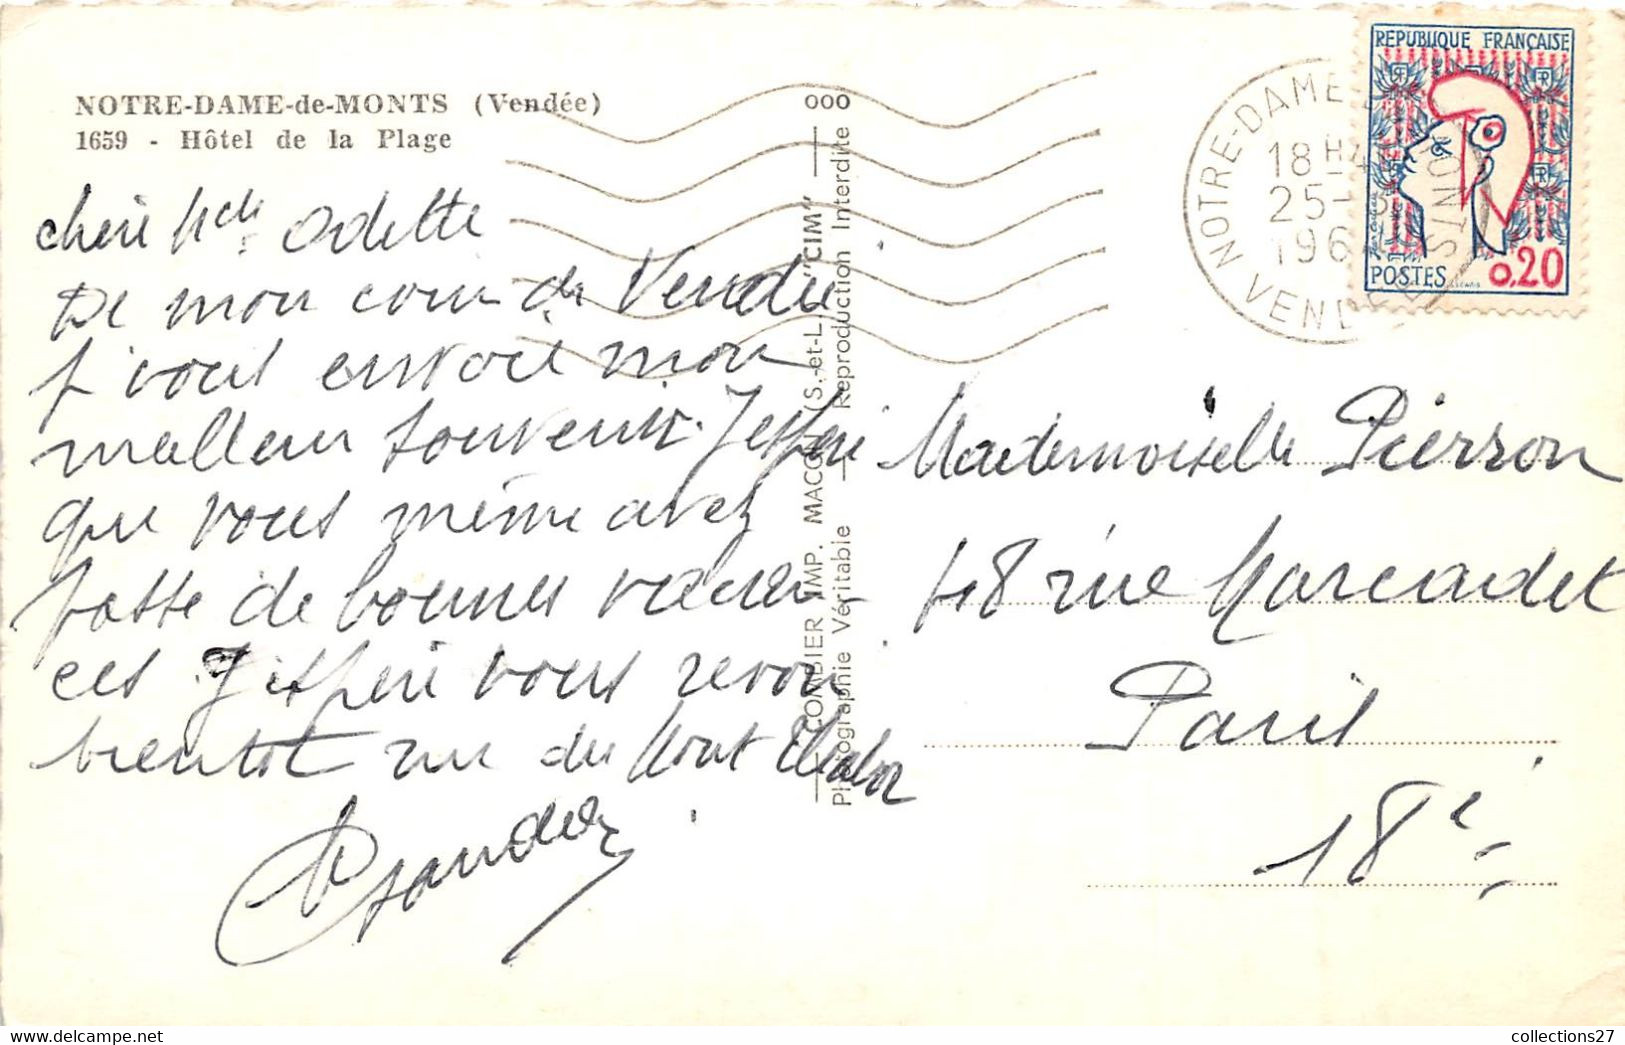 NOTRE-DAME-de-MONTS (Vendée)
1659 - Hôtel de la Plage
chère Melle Odette
De mon coin de Vendée
J vous envoie mon
meilleur souvenir. J'espère
que vous même avez
passé de bonnes vacan
ces J'espère vous revoir
bientot rue du Mont Thabor
COMBIER IMP. MACON (S.-et-L.) "CIM"
Photographie Véritable — Reproduction Interdite
000
NOTRE-DAME DE MONTS
18H
25-
196
VENDÉE
REPUBLIQUE FRANÇAISE
POSTES 0,20
Mademoiselle Pierron
48 rue Marcadet
Paris
18e
collections27